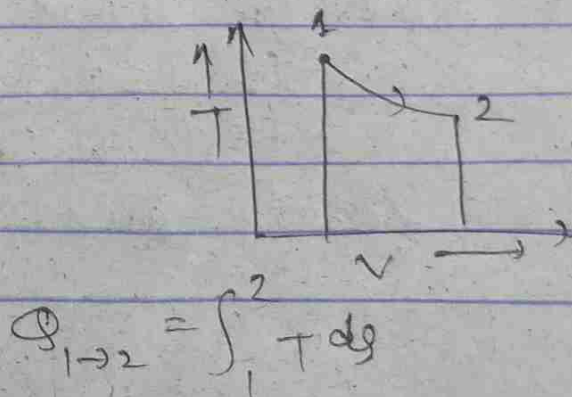 1
T
2
V
Q₁→₂ = ∫₁² T ds